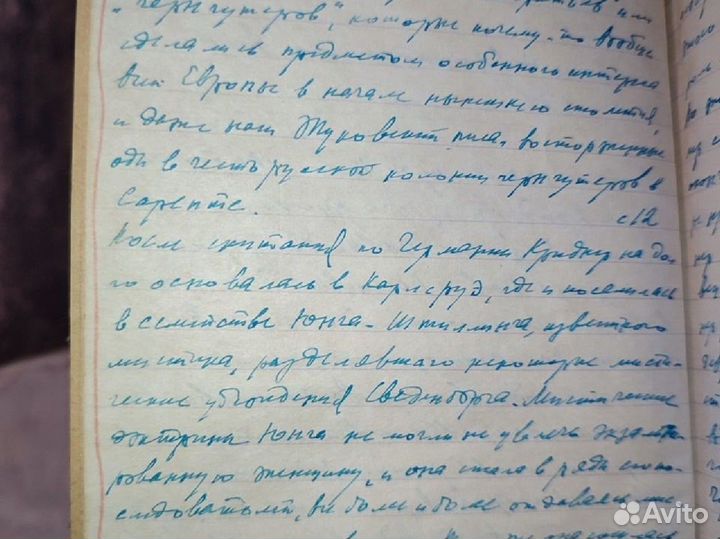 "Чернгутеров", которые почему-то вообще
сделались предметом особенного интереса
вии Европы в начале нынешнего столетия,
и даже наш Жуковский писал восторженные
оды в честь русской колонии чернгутеров в
Сарепте. с12
После скитания по Германии Криднер надол-
го основалась в Карлсруэ, где и поселилась
в семействе Юнга-Штиллинга, известного
мистика, разделявшего некоторые мисти-
ческие убеждения Сведенборга. Мистические
доктрины Юнга не могли не увлечь экзальти-
рованную женщину, и она стала в ряды его по-
следователей, все более и более отдаваясь мис-
Avito